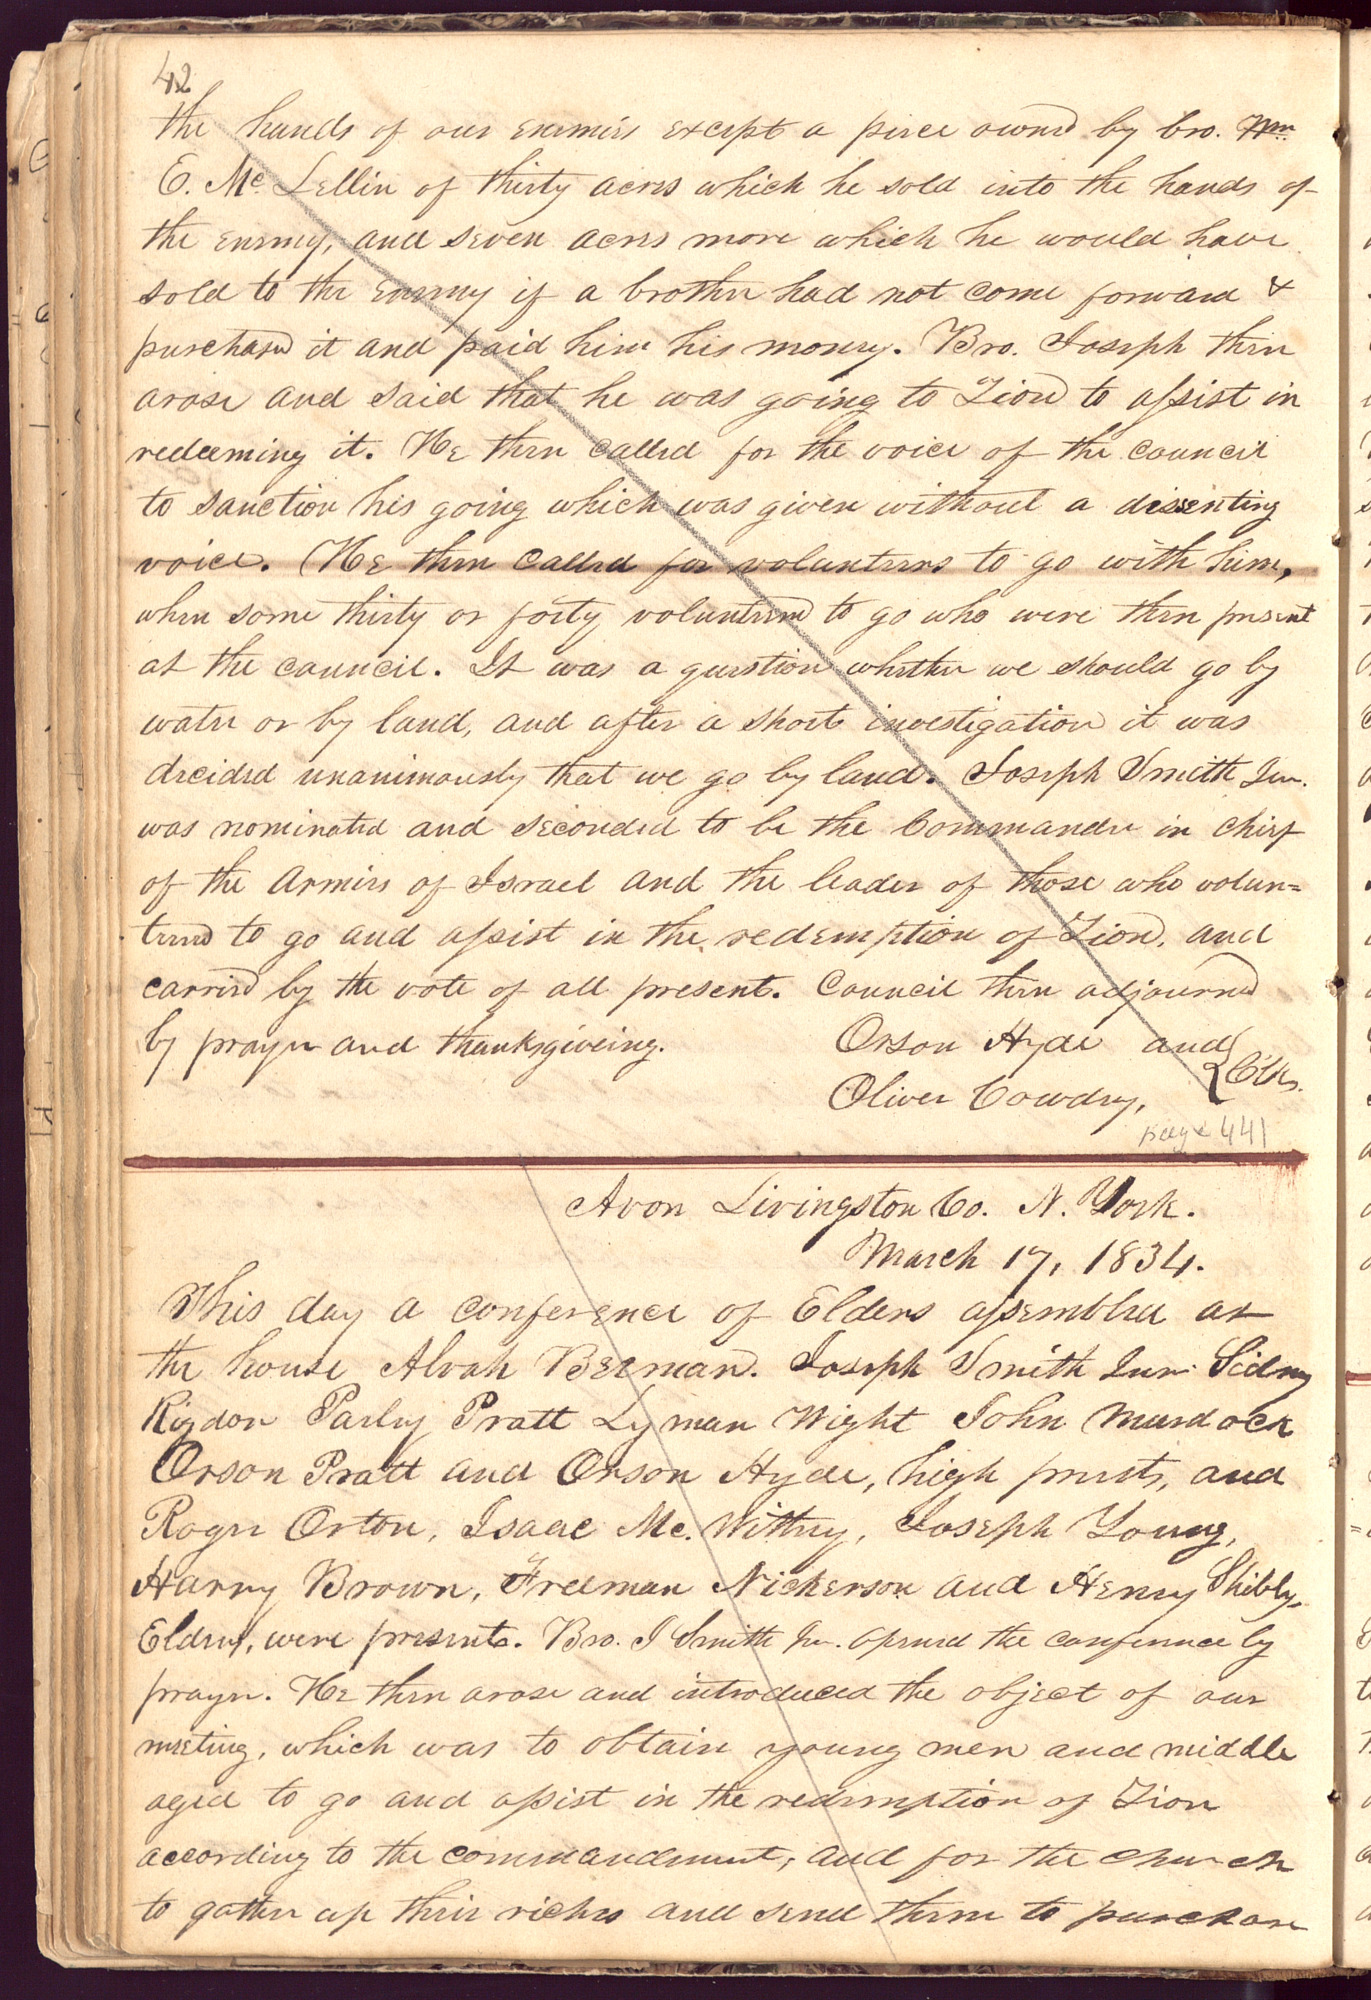 42
the hands of our enemies except a piece owned by bro. Wm
E. Mc Lellin of thirty acres which he sold into the hands of
the enemy, and seven acres more which he would have
sold to the enemy if a brother had not come forward &
purchased it and paid him his money. Bro. Joseph then
arose and said that he was going to Zion to assist in
redeeming it. He then called for the voice of the council
to sanction his going which was given without a dissenting
voice. He then called for volunteers to go with him,
when some thirty or forty volunteered to go who were then present
at the council. It was a question whether we should go by
water or by land, and after a short investigation it was
decided unanimously that we go by land. Joseph Smith Jun.
was nominated and seconded to be the Commander in chief
of the Armies of Israel and the leader of those who volun=
teered to go and assist in the redemption of Zion, and
carried by the vote of all present. Council then adjourned
by prayer and thanksgiveing.
Orson Hyde and
Oliver Cowdry, } Clks.
page 441
Avon Livingston Co. N. York.
March 17, 1834.
This day a conference of Elders assembled at
the house Alvah Beeman. Joseph Smith Jun. Sidney
Rigdon Parley Pratt Lyman Wight John Murdock
Orson Pratt and Orson Hyde, high priests, and
Roger Orton, Isaac Mc. Withey, Joseph Young,
Harry Brown, Freeman Nickerson and Henry Shibly,
Elders, were present. Bro. J Smith Jun. opened the conference by
prayer. He then arose and introduced the object of our
meeting, which was to obtain young men and middle
aged to go and assist in the redemption of Zion
according to the commandment, and for the church
to gather up their riches and send them to purchase